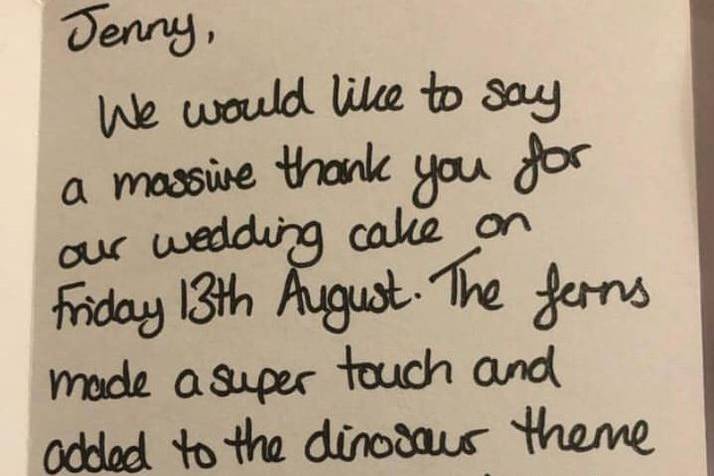 Jenny,
We would like to say
a massive thank you for
our wedding cake on
Friday 13th August. The ferns
made a super touch and
added to the dinosaur theme